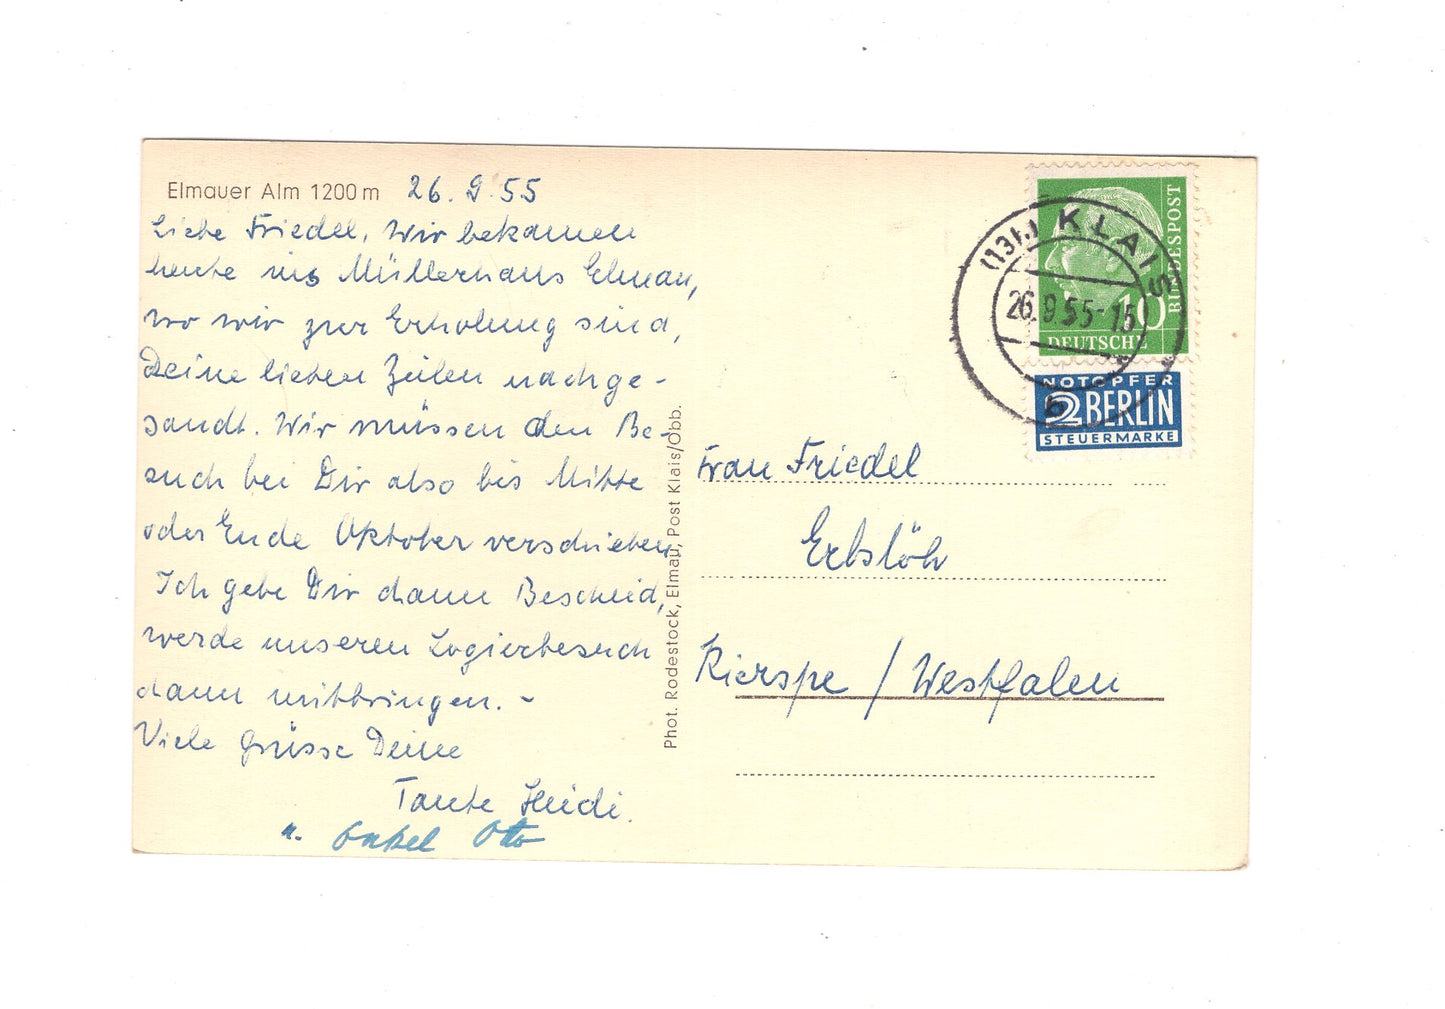 Elmauer Alm 1200 m 26.9.55
Liebe Friedel, Wir bekamen
heute ins Müllerhaus Elmau,
wo wir zur Erholung sind,
Deine lieben Zeilen nachge-
sandt. Wir müssen den Be-
such bei Dir also bis Mitte
oder Ende Oktober verschieben
Ich gebe Dir dann Bescheid,
werde unseren Logierbesuch
dann mitbringen. -
Viele Grüsse Deine
Tante Heidi.
u. Onkel Otto
Phot. Rodestock, Elmau, Post Klais/Obb.
(13b) KLAIS
26.9.55-15
b
DEUTSCHE
BUNDESPOST
10
NOTOPFER
2 BERLIN
STEUERMARKE
Frau Friedel
Erbslöh
Kierspe / Westfalen